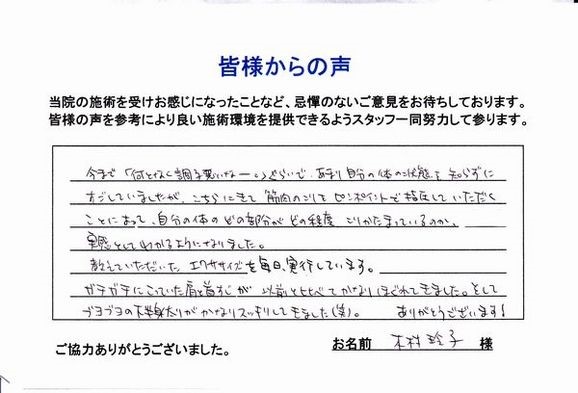 皆様からの声
当院の施術を受けお感じになったことなど、忌憚のないご意見をお待ちしております。
皆様の声を参考により良い施術環境を提供できるようスタッフ一同努力して参ります。
今まで「何となく調子悪いなー。」ぐらいで、あまり自分の体の状態を知らずに
すごしていましたが、こちらにきて筋肉のこりをピンポイントで指圧していただく
ことによって、自分の体のどの部分がどの程度こりかたまっているのか、
実感としてわかるようになりました。
教えていただいたエクササイズを毎日、実行しています。
ガチガチにこっていた肩と首すじが以前と比べてかなりほぐれてきました。そして
ブヨブヨの下半身太りがかなりスッキリしてきました(笑)。 ありがとうございます!
お名前 木村玲子 様
ご協力ありがとうございました。